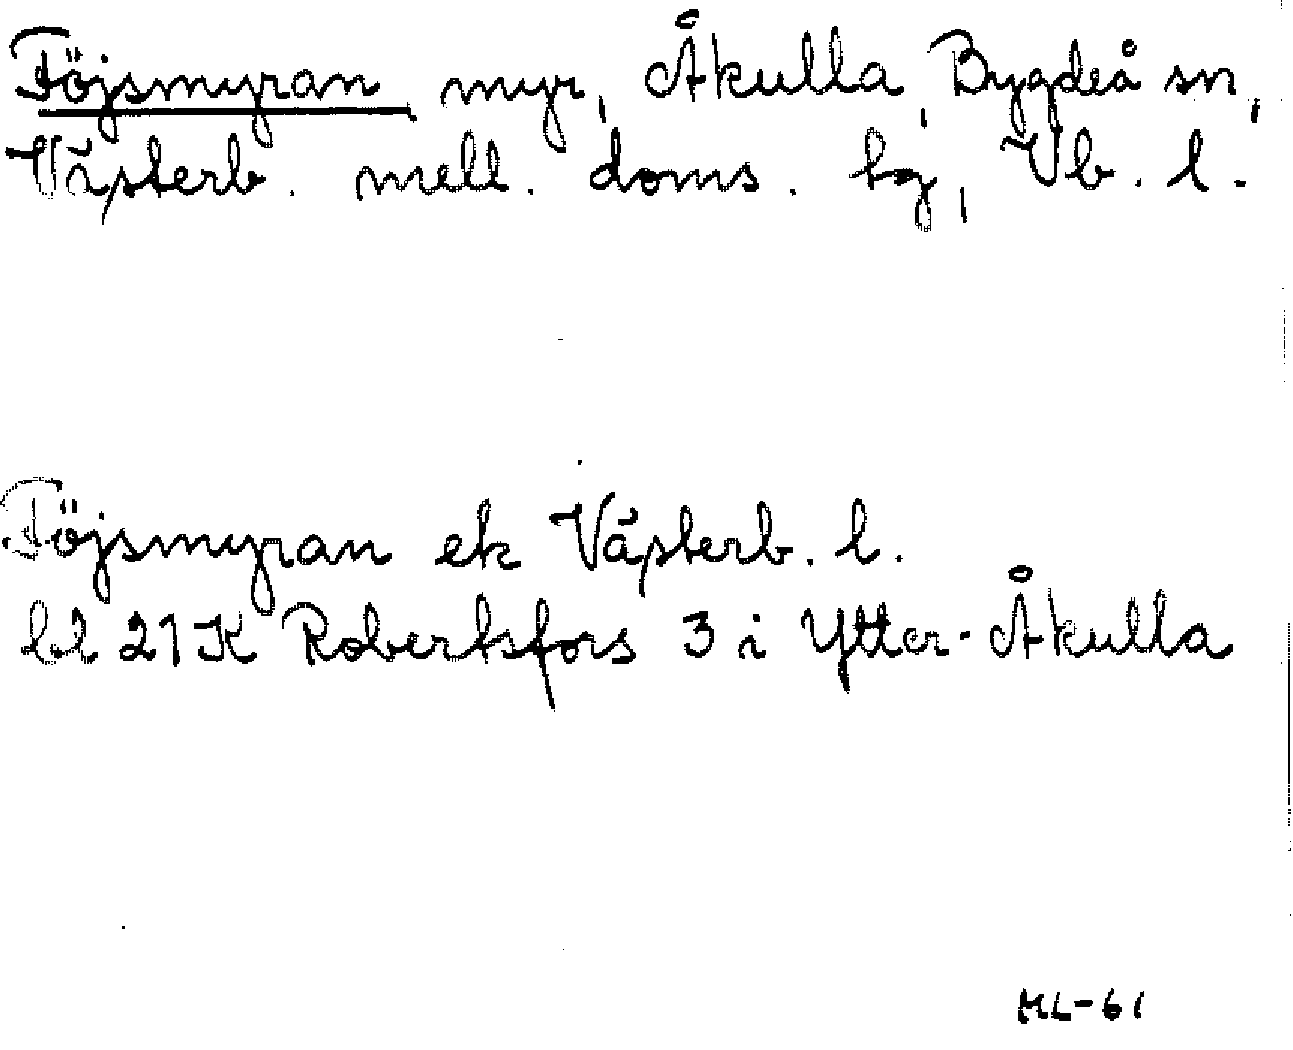 Föjsmyran myr, Åkulla, Bygdeå sn,
Västerb. mell. doms. tg, Vb. l.
Föjsmyran ek Västerb. l.
bl 21K Robertsfors 3 i Ytter-Åkulla
ML-61